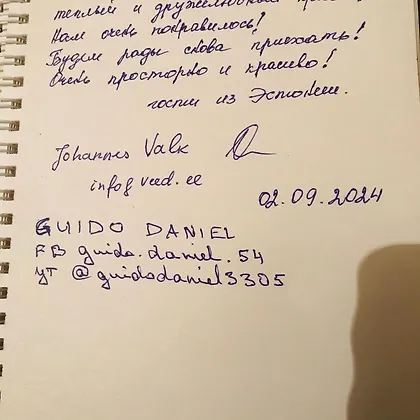 тёплый и дружелюбный
Нам очень понравилось!
Будем рады снова приехать!
Очень просторно и красиво!
гости из Эстонии.
Johannes Valk
02.09.2024
GUIDO DANIEL
FB guido.daniel.54
YT @guidodaniel3305